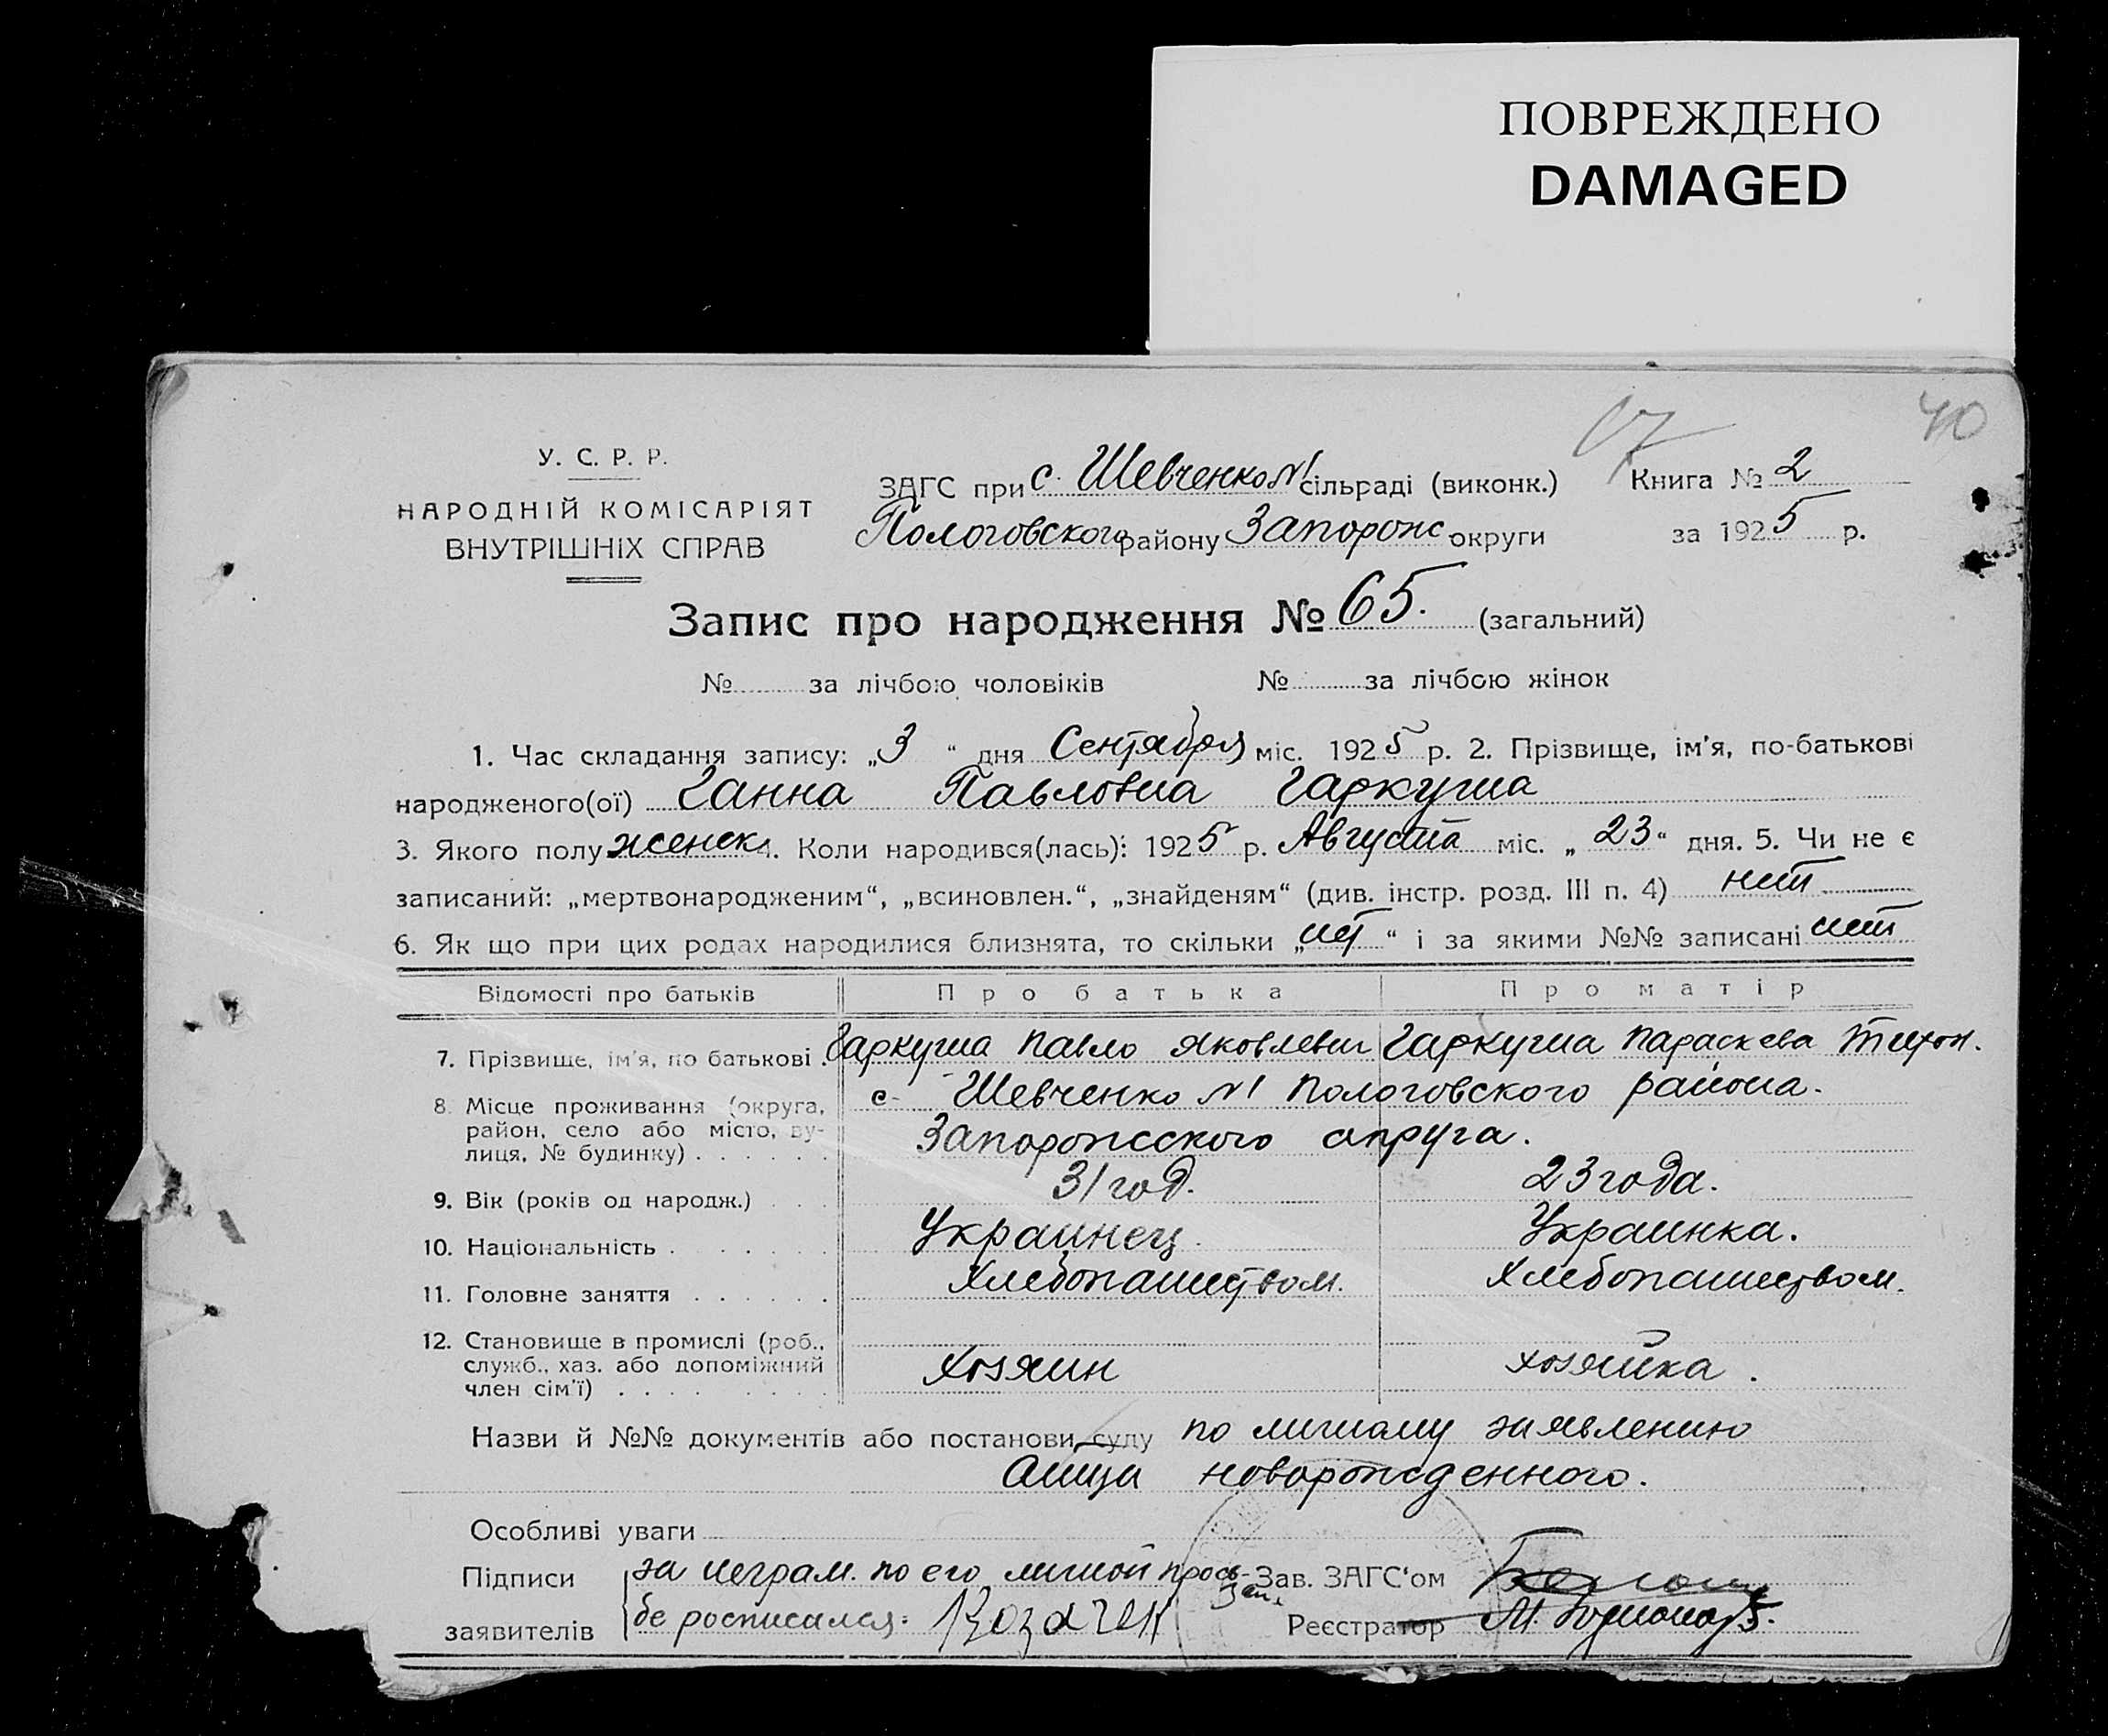 ПОВРЕЖДЕНО
DAMAGED
17
40
У. С. Р. Р.
НАРОДНІЙ КОМІСАРІЯТ
ВНУТРІШНІХ СПРАВ
ЗАГС при с. Шевченко №1 сільраді (виконк.) Книга № 2
Пологовского району Запорожс. округи за 1925 р.
Запис про народження № 65. (загальний)
№ за лічбою чоловіків № за лічбою жінок
1. Час складання запису: „3“ дня Сентября міс. 1925 р. 2. Прізвище, ім'я, по-батькові
народженого(ої) Ганна Павловна Гаркуша
3. Якого полу женск. 4. Коли народився(лась): 1925 р. Августа міс. „23“ дня. 5. Чи не є
записаний: „мертвонародженим“, „всиновлен.“, „знайденям“ (див. інстр. розд. III п. 4) нет
6. Як що при цих родах народилися близнята, то скільки „нет“ і за якими №№ записані нет
Відомості про батьків Про батька Про матір
7. Прізвище, ім'я, по батькові . Гаркуша Павло Яковлевич Гаркуша Параскева
8. Місце проживання (округа, район, село або місто, вулиця, № будинку) . . . . . .
с. Шевченко №1 Пологовского района.
Запорожсского округа.
9. Вік (років од народж.) . . . 31 год. 23 года.
10. Національність . . . . . . Украинец. Украинка.
11. Головне заняття . . . . . . Хлебопашеством. Хлебопашеством.
12. Становище в промислі (роб., служб., хаз. або допоміжний член сім'ї) . . . . . . . . Хозяин хозяйка.
Назви й №№ документів або постанови суду по личному заявлению
отца новорожденного.
Особливі уваги
Підписи заявителів
за неграм. по его личной прось-
бе росписался: Козачек
Зав. ЗАГС'ом
Реєстратор